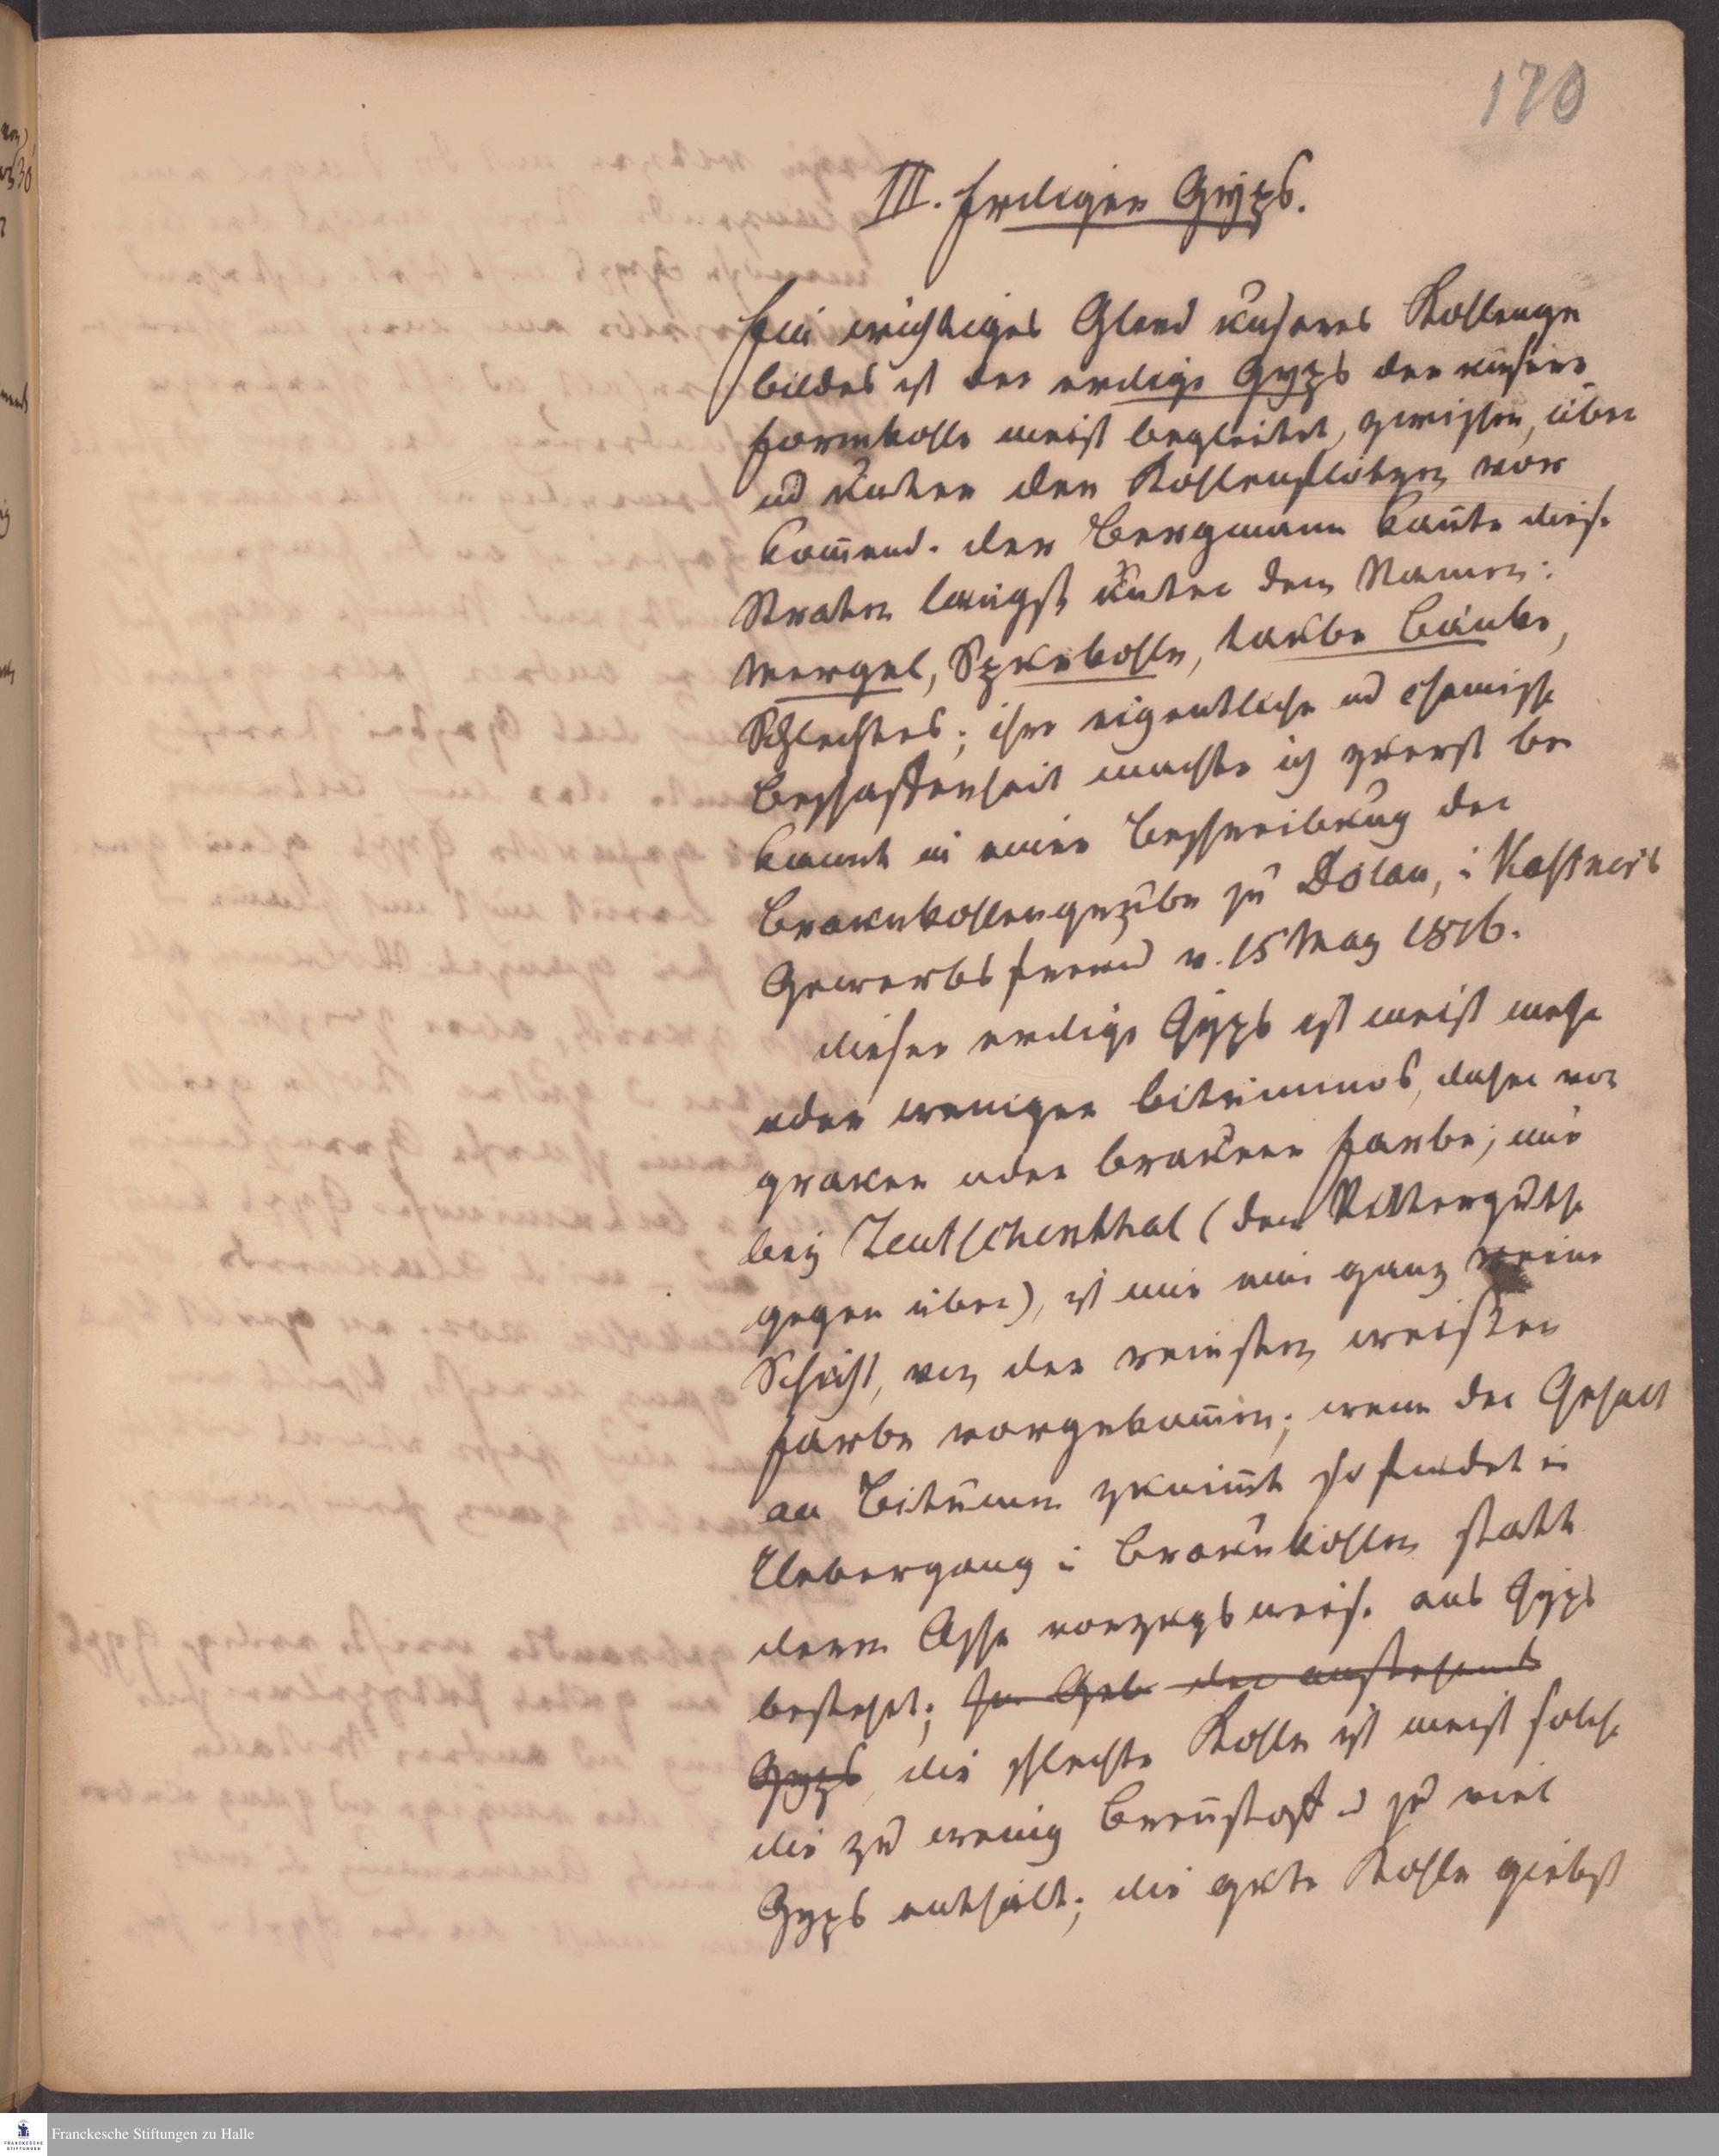 170
III. Erdiger Gyps.
Ein wichtiges Glied unseres Kohlenge
bildes ist der erdige Gyps der unsere
Formkohle meist begleitet, zwischen, über
und unter den Kohlenflötzen vor
kommend. der Bergmann kannte diese
Straten längst unter dem Namen:
Mergel, Speckkohle, taube Bänke,
Schlechtes; ihre eigentliche und chemische
Beschaffenheit machte ich zuerst be
kannt in einer Beschreibung der
Braunkohlengrube zu Dölau, i Kastners
Gewerbsfreund v. 15 May 1816.
dieser erdige Gyps ist meist mehr
oder weniger bituminös, daher von
grauer oder brauner Farbe; nur
bey Teutschenthal (dem Ritterguthe
gegen über), ist mir eine ganz reine
Schicht, von der reinsten weißen
Farbe vorgekommen; wenn der Gehalt
an Bitumen zunimmt so findet ein
Uebergang i Braunkohlen statt
deren Asche vorzugsweise aus Gyps
besteht; Im Geb der anstehende
Gyps, die schlechte Kohle ist meist solche
die zu wenig Brennstoff u zu viel
Gyps enthält; die gute Kohle giebt
Franckesche Stiftungen zu Halle